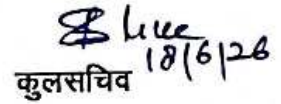 18/6/26
कुलसचिव